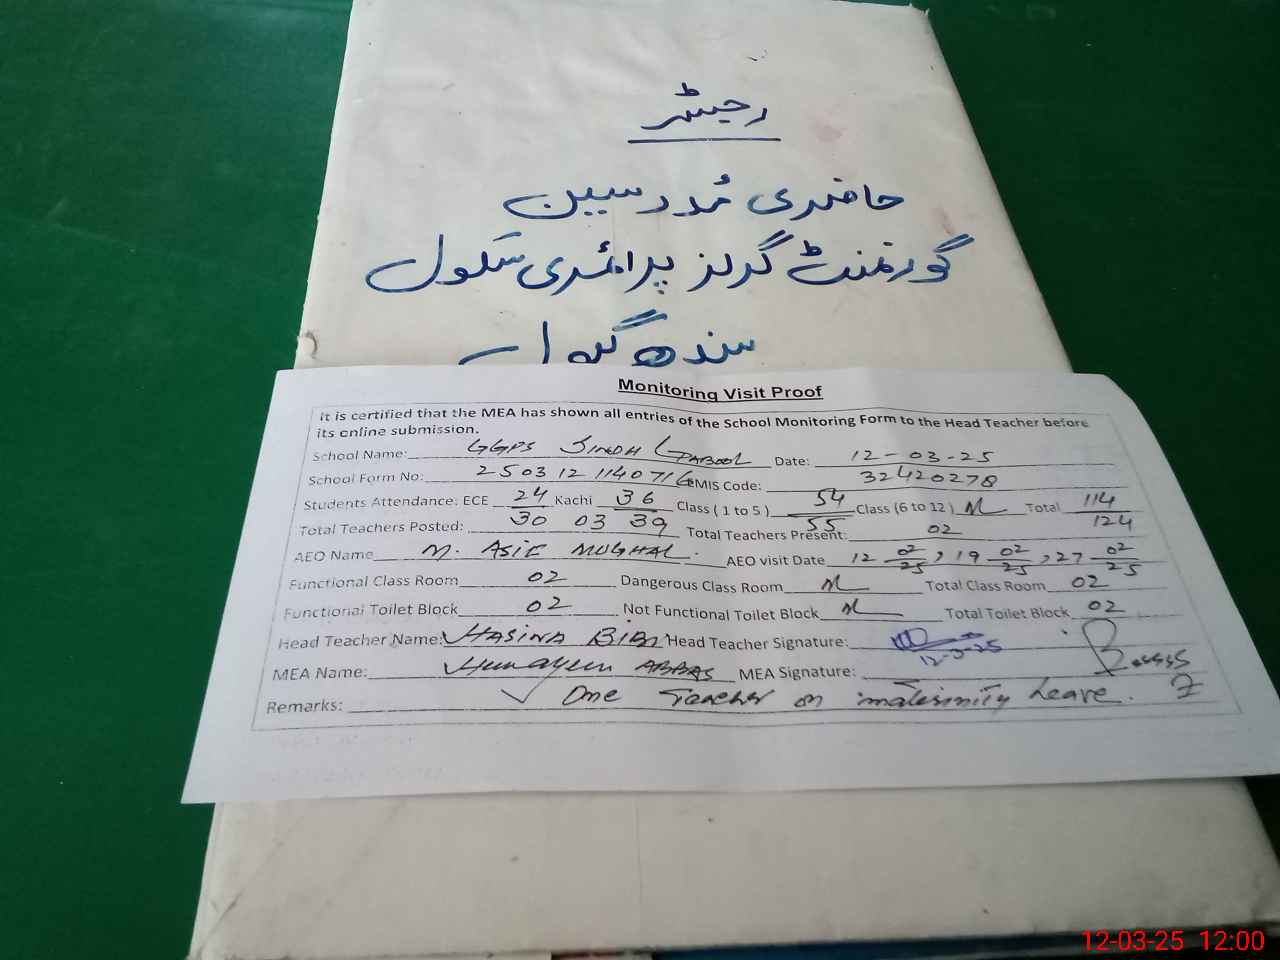 رجیسٹر
حاضری مُدرسین
گورنمنٹ گرلز پرائمری سکول
سندھ
Monitoring Visit Proof
It is certified that the MEA has shown all entries of the School Monitoring Form to the Head Teacher before
its online submission.
School Name: GGPS SINDH Date: 12-03-25
School Form No: 2503121140716 EMIS Code: 32420278
Students Attendance: ECE 24/30 Kachi 36/39 Class ( 1 to 5 ) 54/55 Class (6 to 12) Total 114/124
Total Teachers Posted: 03 Total Teachers Present: 02
AEO Name M. ASIF MUGHAL AEO visit Date 12 02/25, 19 02/25, 27 02/25
Functional Class Room 02 Dangerous Class Room Total Class Room 02
Functional Toilet Block 02 Not Functional Toilet Block Total Toilet Block 02
Head Teacher Name: HASINA BIBI Head Teacher Signature: 12-3-25
MEA Name: Humayun ABBAS MEA Signature:
Remarks: One Teacher on maternity Leave.
12-03-25 12:00